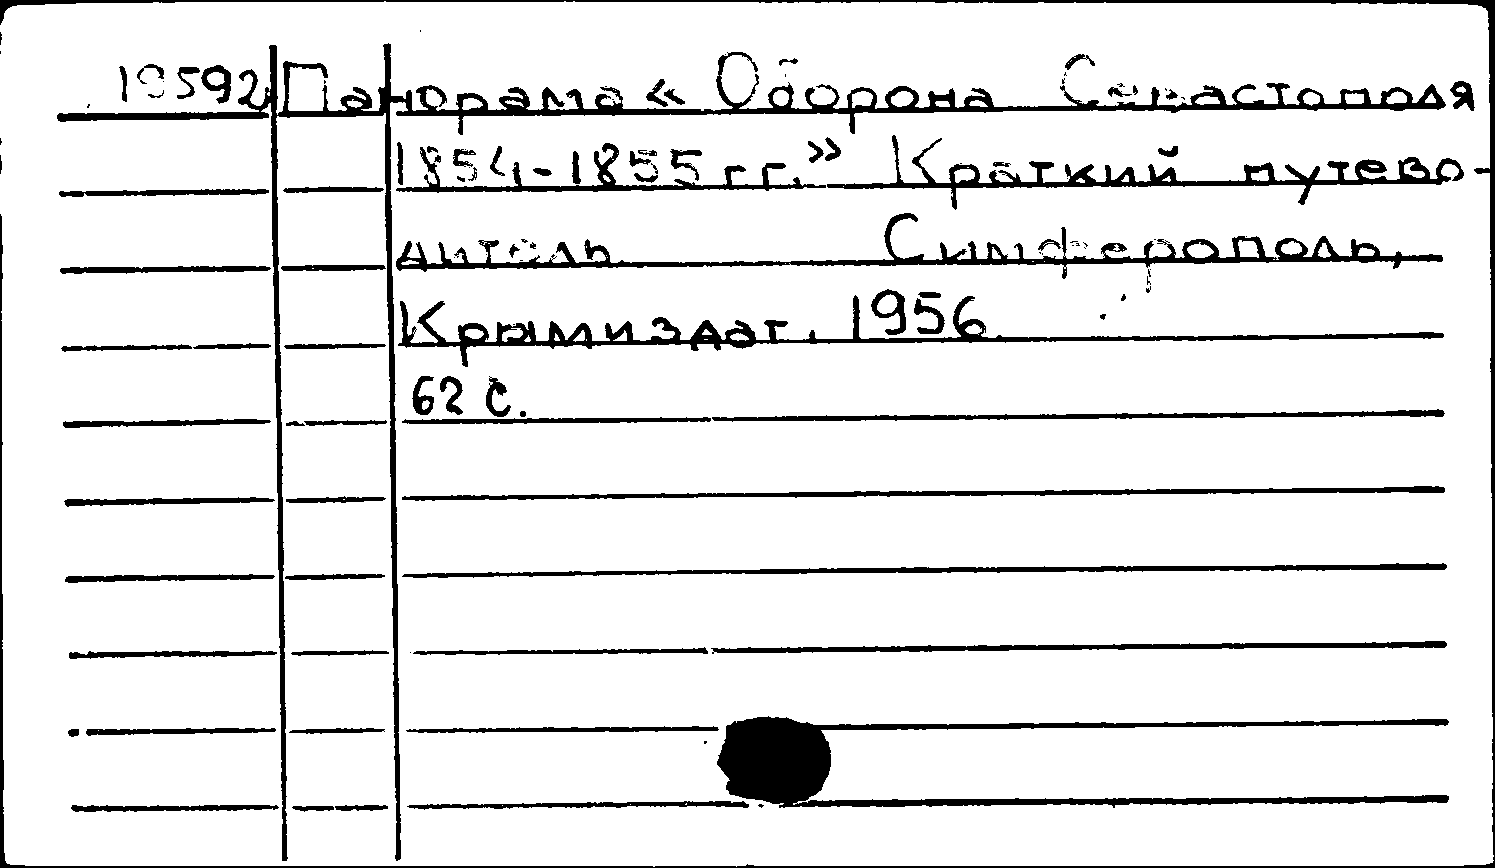 19592 Панорама « Оборона Севастополя
1854-1855 гг.» Краткий путево-
дитель Симферополь,
Крымиздат. 1956.
62 с.